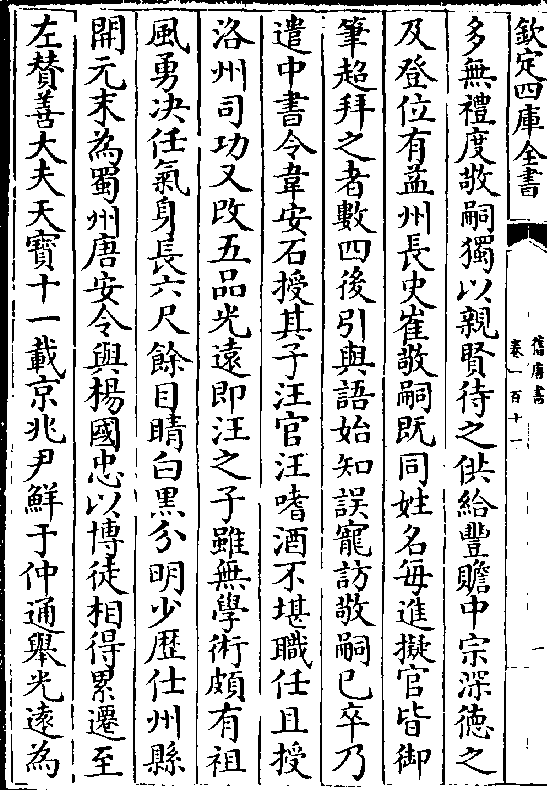 欽定四庫全書
舊唐書
卷一百十一
一
多無禮度敬嗣獨以親賢待之供給豐贍中宗深德之
及登位有益州長史崔敬嗣既同姓名每進擬官皆御
筆超拜之者數四後引與語始知誤寵訪敬嗣已卒乃
遣中書令韋安石授其子汪官汪嗜酒不堪職任且授
洛州司功又改五品光遠即汪之子雖無學術頗有祖
風勇决任氣身長六尺餘目睛白黑分明少歴仕州縣
開元末為蜀州唐安令與楊國忠以博徒相得累遷至
左賛善大夫天寶十一載京兆尹鮮于仲通舉光遠為